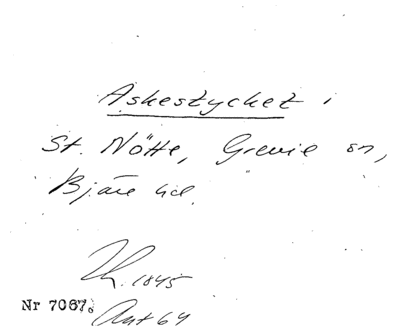 Askestycket i
St. Nötte, Grevie sn,
Bjäre hd.
1845
Nr 7067.
Ant 64